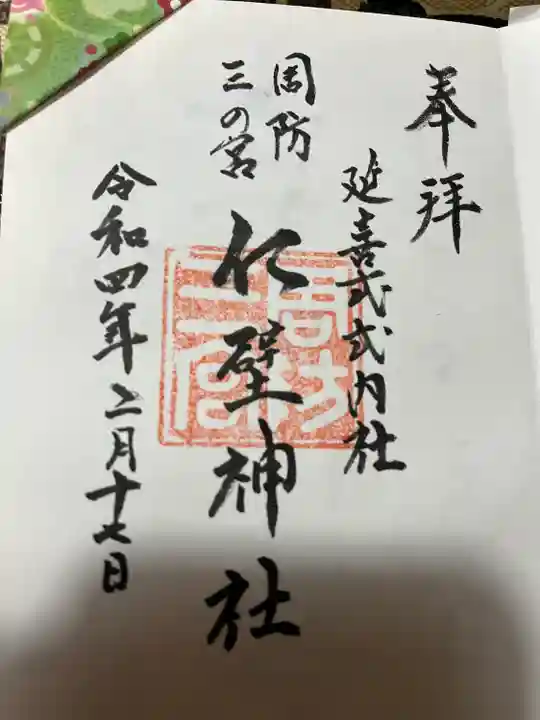 奉拝
延喜式式内社
周防
三の宮
仁壁神社
令和四年二月十七日